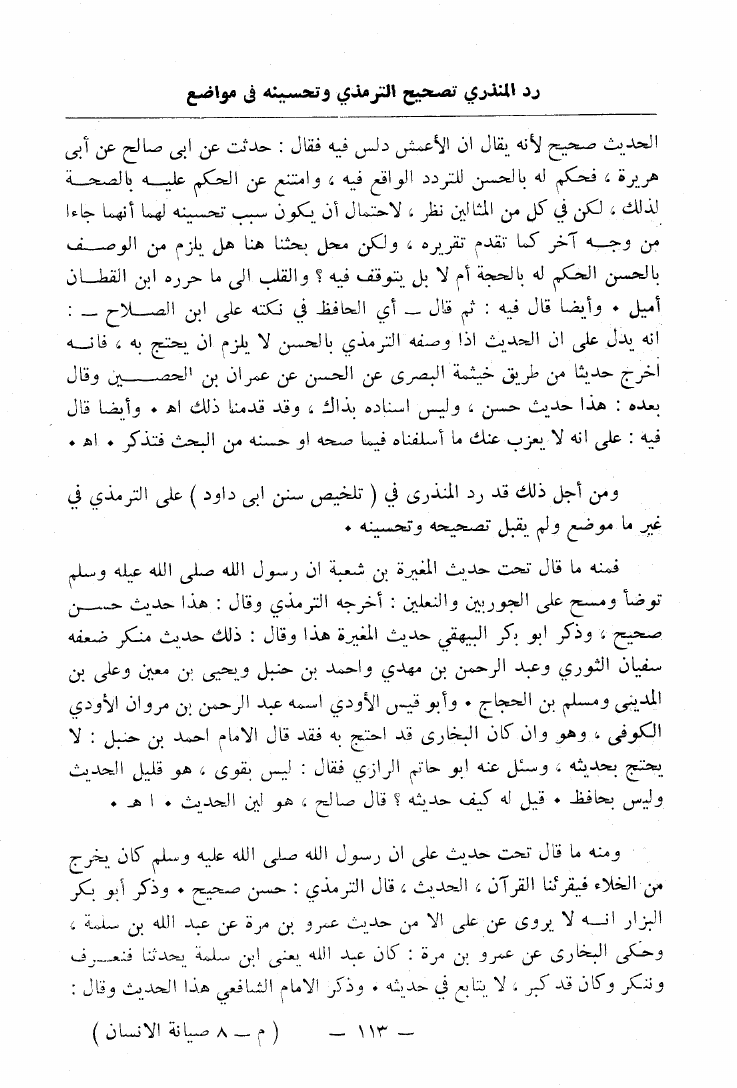 رد المنذري تصحيح الترمذي وتحسينه فى مواضع
الحديث صحيح لأنه يقال ان الأعمش دلس فيه فقال : حدثت عن ابى صالح عن أبى
هريرة ، فحكم له بالحسن للتردد الواقع فيه ، وامتنع عن الحكم عليه بالصحة
لذلك ، لكن في كل من المثالين نظر ، لاحتمال أن يكون سبب تحسينه لهما أنهما جاءا
من وجه آخر كما تقدم تقريره ، ولكن محل بحثنا هنا هل يلزم من الوصف
بالحسن الحكم له بالحجة أم لا بل يتوقف فيه ؟ والقلب الى ما حرره ابن القطان
أميل ٠ وأيضا قال فيه : ثم قال — أي الحافظ في نكته على ابن الصلاح — :
انه يدل على ان الحديث اذا وصفه الترمذي بالحسن لا يلزم ان يحتج به ، فانه
اخرج حديثا من طريق خيثمة البصرى عن الحسن عن عمران بن الحصين وقال
بعده : هذا حديث حسن ، وليس اسناده بذاك ، وقد قدمنا ذلك اهـ ٠ وأيضا قال
فيه : على انه لا يعزب عنك ما أسلفناه فيما صحه او حسنه من البحث فتذكر ٠ اهـ ٠
ومن أجل ذلك قد رد المنذرى في ( تلخيص سنن ابى داود ) على الترمذي في
غير ما موضع ولم يقبل تصحيحه وتحسينه ٠
فمنه ما قال تحت حديث المغيرة بن شعبة ان رسول الله صلى الله عيله وسلم
توضأ ومسح على الجوربين والنعلين : أخرجه الترمذي وقال : هذا حديث حسن
صحيح ، وذكر ابو بكر البيهقي حديث المغيرة هذا وقال : ذلك حديث منكر ضعفه
سفيان الثوري وعبد الرحمن بن مهدي واحمد بن حنبل ويحيى بن معين وعلى بن
المدينى ومسلم بن الحجاج ٠ وأبو قيس الأودي اسمه عبد الرحمن بن مروان الأودي
الكوفى ، وهو وان كان البخارى قد احتج به فقد قال الامام احمد بن حنبل : لا
يحتج بحديثه ، وسئل عنه ابو حاتم الرازي فقال : ليس بقوى ، هو قليل الحديث
وليس بحافظ ٠ قيل له كيف حديثه ؟ قال صالح ، هو لين الحديث ٠ ا هـ ٠
ومنه ما قال تحت حديث على ان رسول الله صلى الله عليه وسلم كان يخرج
من الخلاء فيقرئنا القرآن ، الحديث ، قال الترمذي : حسن صحيح ٠ وذكر أبو بكر
البزار انه لا يروى عن على الا من حديث عمرو بن مرة عن عبد الله بن سلمة ،
وحكى البخارى عن عمرو بن مرة : كان عبد الله يعنى ابن سلمة يحدثنا فنعرف
وننكر وكان قد كبر ، لا يتابع في حديثه ٠ وذكر الامام الشافعي هذا الحديث وقال :
— ١١٣ — ( م — ٨ صيانة الانسان )